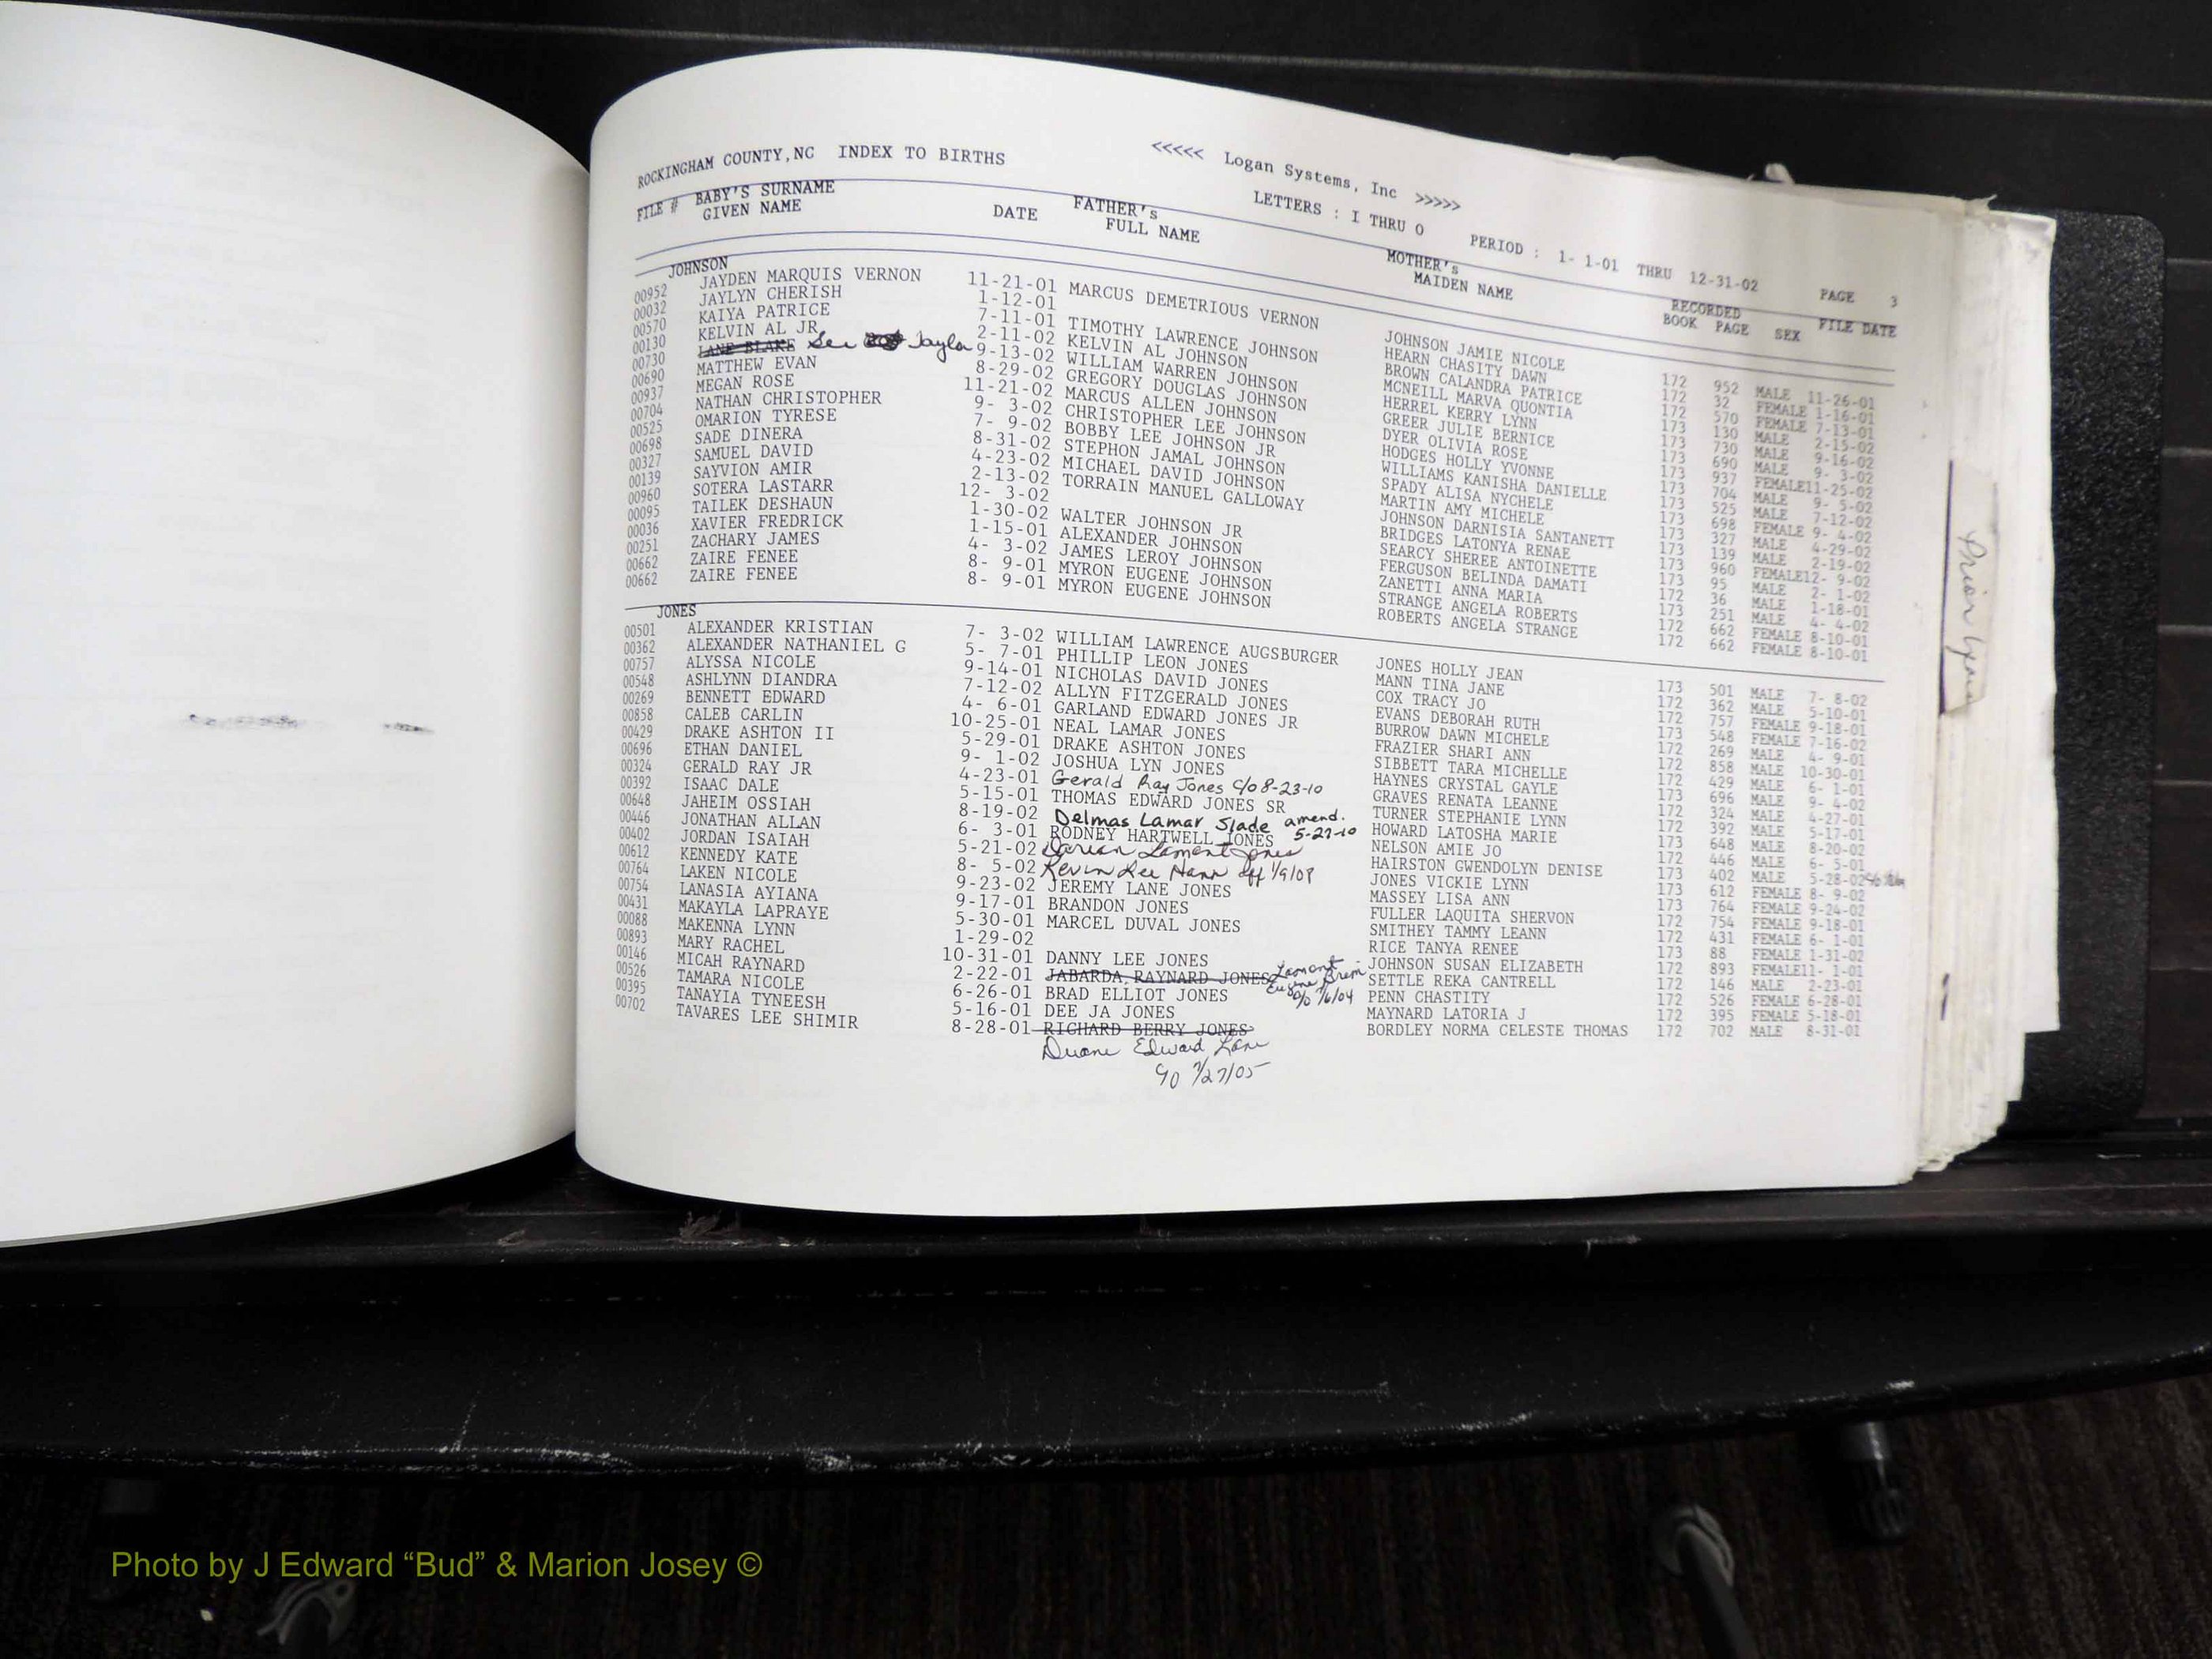 ROCKINGHAM COUNTY,NC INDEX TO BIRTHS <<<<< Logan Systems, Inc >>>>>
LETTERS : I THRU O PERIOD : 1- 1-01 THRU 12-31-02 PAGE 3
FILE # BABY'S SURNAME GIVEN NAME DATE FATHER's FULL NAME MOTHER's MAIDEN NAME RECORDED BOOK PAGE SEX FILE DATE
JOHNSON
00952 JAYDEN MARQUIS VERNON 11-21-01 MARCUS DEMETRIOUS VERNON JOHNSON JAMIE NICOLE 172 952 MALE 11-26-01
00032 JAYLYN CHERISH 1-12-01 HEARN CHASITY DAWN 172 32 FEMALE 1-16-01
00570 KAIYA PATRICE 7-11-01 TIMOTHY LAWRENCE JOHNSON BROWN CALANDRA PATRICE 172 570 FEMALE 7-13-01
00130 KELVIN AL JR 2-11-02 KELVIN AL JOHNSON MCNEILL MARVA QUONTIA 173 130 MALE 2-15-02
00730 LANE BLAKE See Jaylon 9-13-02 WILLIAM WARREN JOHNSON HERREL KERRY LYNN 173 730 MALE 9-16-02
00690 MATTHEW EVAN 8-29-02 GREGORY DOUGLAS JOHNSON GREER JULIE BERNICE 173 690 MALE 9- 3-02
00937 MEGAN ROSE 11-21-02 MARCUS ALLEN JOHNSON DYER OLIVIA ROSE 173 937 FEMALE11-25-02
00704 NATHAN CHRISTOPHER 9- 3-02 CHRISTOPHER LEE JOHNSON HODGES HOLLY YVONNE 173 704 MALE 9- 5-02
00525 OMARION TYRESE 7- 9-02 BOBBY LEE JOHNSON JR WILLIAMS KANISHA DANIELLE 173 525 MALE 7-12-02
00698 SADE DINERA 8-31-02 STEPHON JAMAL JOHNSON SPADY ALISA NYCHELE 173 698 FEMALE 9- 4-02
00327 SAMUEL DAVID 4-23-02 MICHAEL DAVID JOHNSON MARTIN AMY MICHELE 173 327 MALE 4-29-02
00139 SAYVION AMIR 2-13-02 TORRAIN MANUEL GALLOWAY JOHNSON DARNISIA SANTANETT 173 139 MALE 2-19-02
00960 SOTERA LASTARR 12- 3-02 BRIDGES LATONYA RENAE 173 960 FEMALE12- 9-02
00095 TAILEK DESHAUN 1-30-02 WALTER JOHNSON JR SEARCY SHEREE ANTOINETTE 173 95 MALE 2- 1-02
00036 XAVIER FREDRICK 1-15-01 ALEXANDER JOHNSON FERGUSON BELINDA DAMATI 172 36 MALE 1-18-01
00251 ZACHARY JAMES 4- 3-02 JAMES LEROY JOHNSON ZANETTI ANNA MARIA 173 251 MALE 4- 4-02
00662 ZAIRE FENEE 8- 9-01 MYRON EUGENE JOHNSON STRANGE ANGELA ROBERTS 172 662 FEMALE 8-10-01
00662 ZAIRE FENEE 8- 9-01 MYRON EUGENE JOHNSON ROBERTS ANGELA STRANGE 172 662 FEMALE 8-10-01
JONES
00501 ALEXANDER KRISTIAN 7- 3-02 WILLIAM LAWRENCE AUGSBURGER JONES HOLLY JEAN 173 501 MALE 7- 8-02
00362 ALEXANDER NATHANIEL G 5- 7-01 PHILLIP LEON JONES MANN TINA JANE 172 362 MALE 5-10-01
00757 ALYSSA NICOLE 9-14-01 NICHOLAS DAVID JONES COX TRACY JO 172 757 FEMALE 9-18-01
00548 ASHLYNN DIANDRA 7-12-02 ALLYN FITZGERALD JONES EVANS DEBORAH RUTH 173 548 FEMALE 7-16-02
00269 BENNETT EDWARD 4- 6-01 GARLAND EDWARD JONES JR BURROW DAWN MICHELE 172 269 MALE 4- 9-01
00858 CALEB CARLIN 10-25-01 NEAL LAMAR JONES FRAZIER SHARI ANN 172 858 MALE 10-30-01
00429 DRAKE ASHTON II 5-29-01 DRAKE ASHTON JONES SIBBETT TARA MICHELLE 172 429 MALE 6- 1-01
00696 ETHAN DANIEL 9- 1-02 JOSHUA LYN JONES HAYNES CRYSTAL GAYLE 173 696 MALE 9- 4-02
00324 GERALD RAY JR 4-23-01 Gerald Ray Jones C/O 8-23-10 GRAVES RENATA LEANNE 172 324 MALE 4-27-01
00392 ISAAC DALE 5-15-01 THOMAS EDWARD JONES SR TURNER STEPHANIE LYNN 172 392 MALE 5-17-01
00648 JAHEIM OSSIAH 8-19-02 Delmas Lamar Slade amend. 5-27-10 HOWARD LATOSHA MARIE 173 648 MALE 8-20-02
00446 JONATHAN ALLAN 6- 3-01 RODNEY HARTWELL JONES NELSON AMIE JO 172 446 MALE 6- 5-01
00402 JORDAN ISAIAH 5-21-02 Darian Lamont Jones HAIRSTON GWENDOLYN DENISE 173 402 MALE 5-28-02
00612 KENNEDY KATE 8- 5-02 Kevin Lee Hann aff 1/9/08 JONES VICKIE LYNN 173 612 FEMALE 8- 9-02
00764 LAKEN NICOLE 9-23-02 JEREMY LANE JONES MASSEY LISA ANN 173 764 FEMALE 9-24-02
00754 LANASIA AYIANA 9-17-01 BRANDON JONES FULLER LAQUITA SHERVON 172 754 FEMALE 9-18-01
00431 MAKAYLA LAPRAYE 5-30-01 MARCEL DUVAL JONES SMITHEY TAMMY LEANN 172 431 FEMALE 6- 1-01
00088 MAKENNA LYNN 1-29-02 RICE TANYA RENEE 173 88 FEMALE 1-31-02
00893 MARY RACHEL 10-31-01 DANNY LEE JONES JOHNSON SUSAN ELIZABETH 172 893 FEMALE11- 1-01
00146 MICAH RAYNARD 2-22-01 JABARDA, RAYNARD JONES Lamont Eugene SETTLE REKA CANTRELL 172 146 MALE 2-23-01
00526 TAMARA NICOLE 6-26-01 BRAD ELLIOT JONES PENN CHASTITY 172 526 FEMALE 6-28-01
00395 TANAYIA TYNEESH 5-16-01 DEE JA JONES MAYNARD LATORIA J 172 395 FEMALE 5-18-01
00702 TAVARES LEE SHIMIR 8-28-01 RICHARD BERRY JONES BORDLEY NORMA CELESTE THOMAS 172 702 MALE 8-31-01
Duane Edward Lane
7/27/05
Prior
Photo by J Edward “Bud” & Marion Josey ©